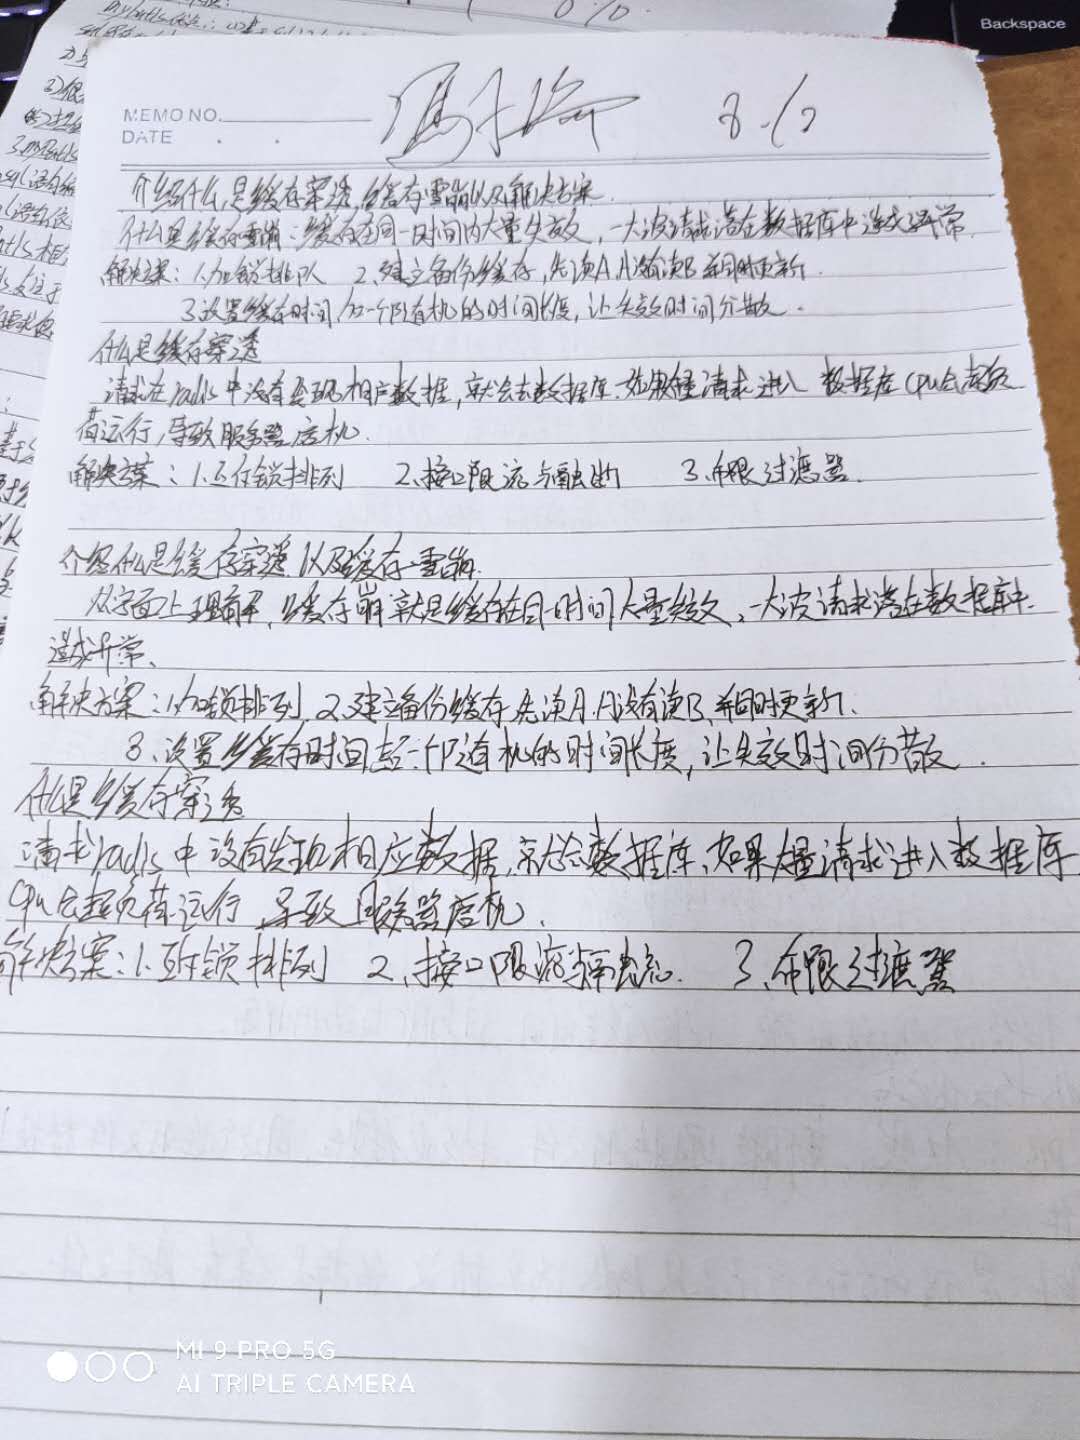 Backspace
MEMO NO.
DATE
介绍什么是缓存穿透,缓存雪崩以及解决方案.
什么是缓存雪崩:缓存在同一时间内大量失效,一大波请求落在数据库中造成异常.
解决方案:1.加锁排队 2.建立备份缓存,先读A,A没有读B并同时更新.
3.设置缓存时间,加一个随机的时间长度,让失效时间分散.
什么是缓存穿透
请求在redis中没有发现相应数据,就会去数据库.如果大量请求进入 数据库cpu会超负
荷运行,导致服务器宕机.
解决方案:1.互斥锁排列 2.接口限流与融断 3.布隆过滤器.
介绍什么是缓存穿透.以及缓存雪崩.
从字面上理解,缓存崩就是缓存在同一时间大量失效,一大波请求落在数据库中.
造成异常、
解决方案:1.加锁排列,2.建立备份缓存,先读A.A没有读B、并同时更新.
3.设置缓存时间,给一个随机的时间长度,让失效时间分散.
什么是缓存穿透
请求redis中没有发现相应数据,就去数据库、如果大量请求进入数据库
cpu会超负荷运行,导致服务器宕机.
解决方案:1.互斥锁排列 2.接口限流 3.布隈过滤器
MI 9 PRO 5G
AI TRIPLE CAMERA